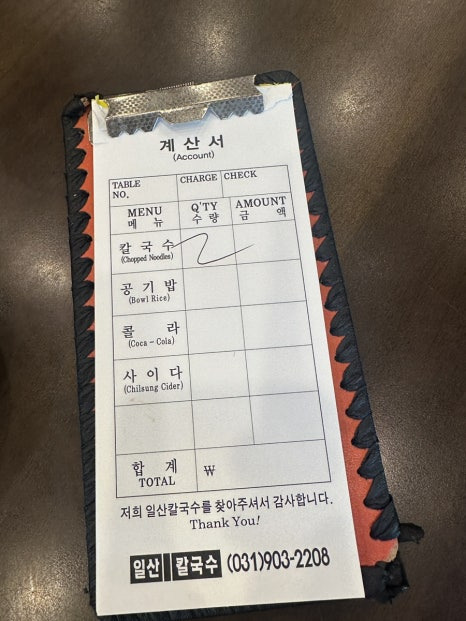 계산서
(Account)
TABLE NO. CHARGE CHECK
MENU 메뉴 Q'TY 수량 AMOUNT 금액
칼국수 (Chopped Noodles) 2
공기밥 (Bowl Rice)
콜라 (Coca-Cola)
사이다 (Chilsung Cider)
합계 TOTAL ₩
저희 일산칼국수를 찾아주셔서 감사합니다.
Thank You!
일산 칼국수 (031)903-2208